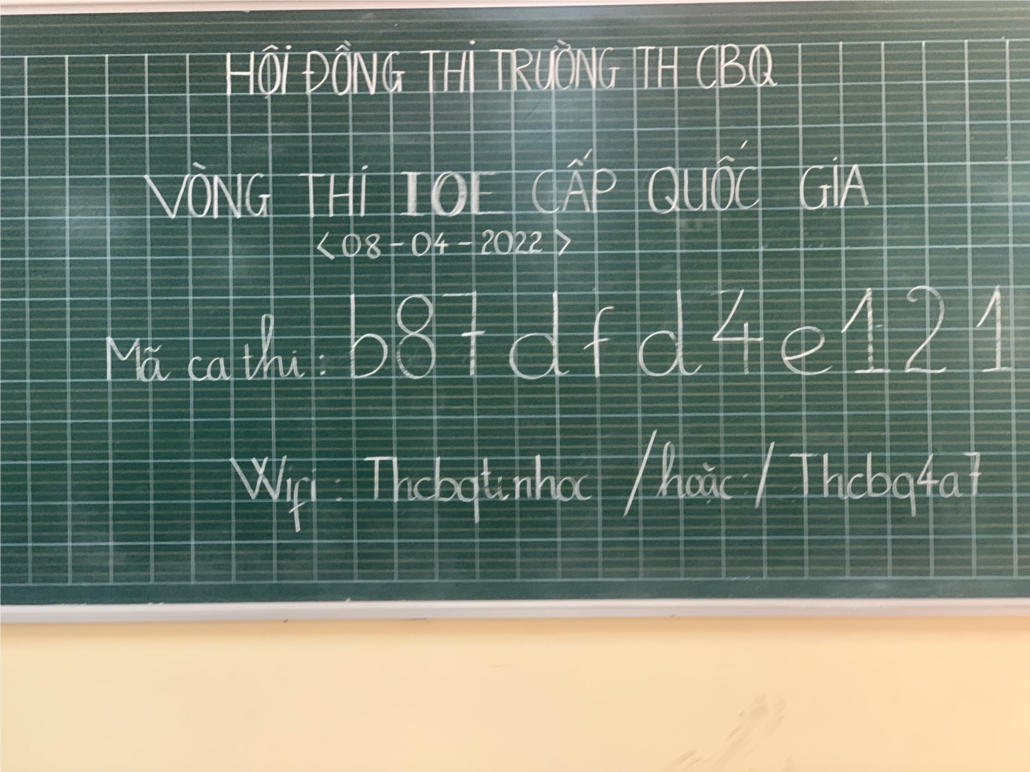 HỘI ĐỒNG THI TRƯỜNG TH CBQ
VÒNG THI IOE CẤP QUỐC GIA
<08-04-2022>
Mã ca thi: b87dfd4e121
Wifi: Thcbqtinhoc /hoặc/ Thcbq4a7